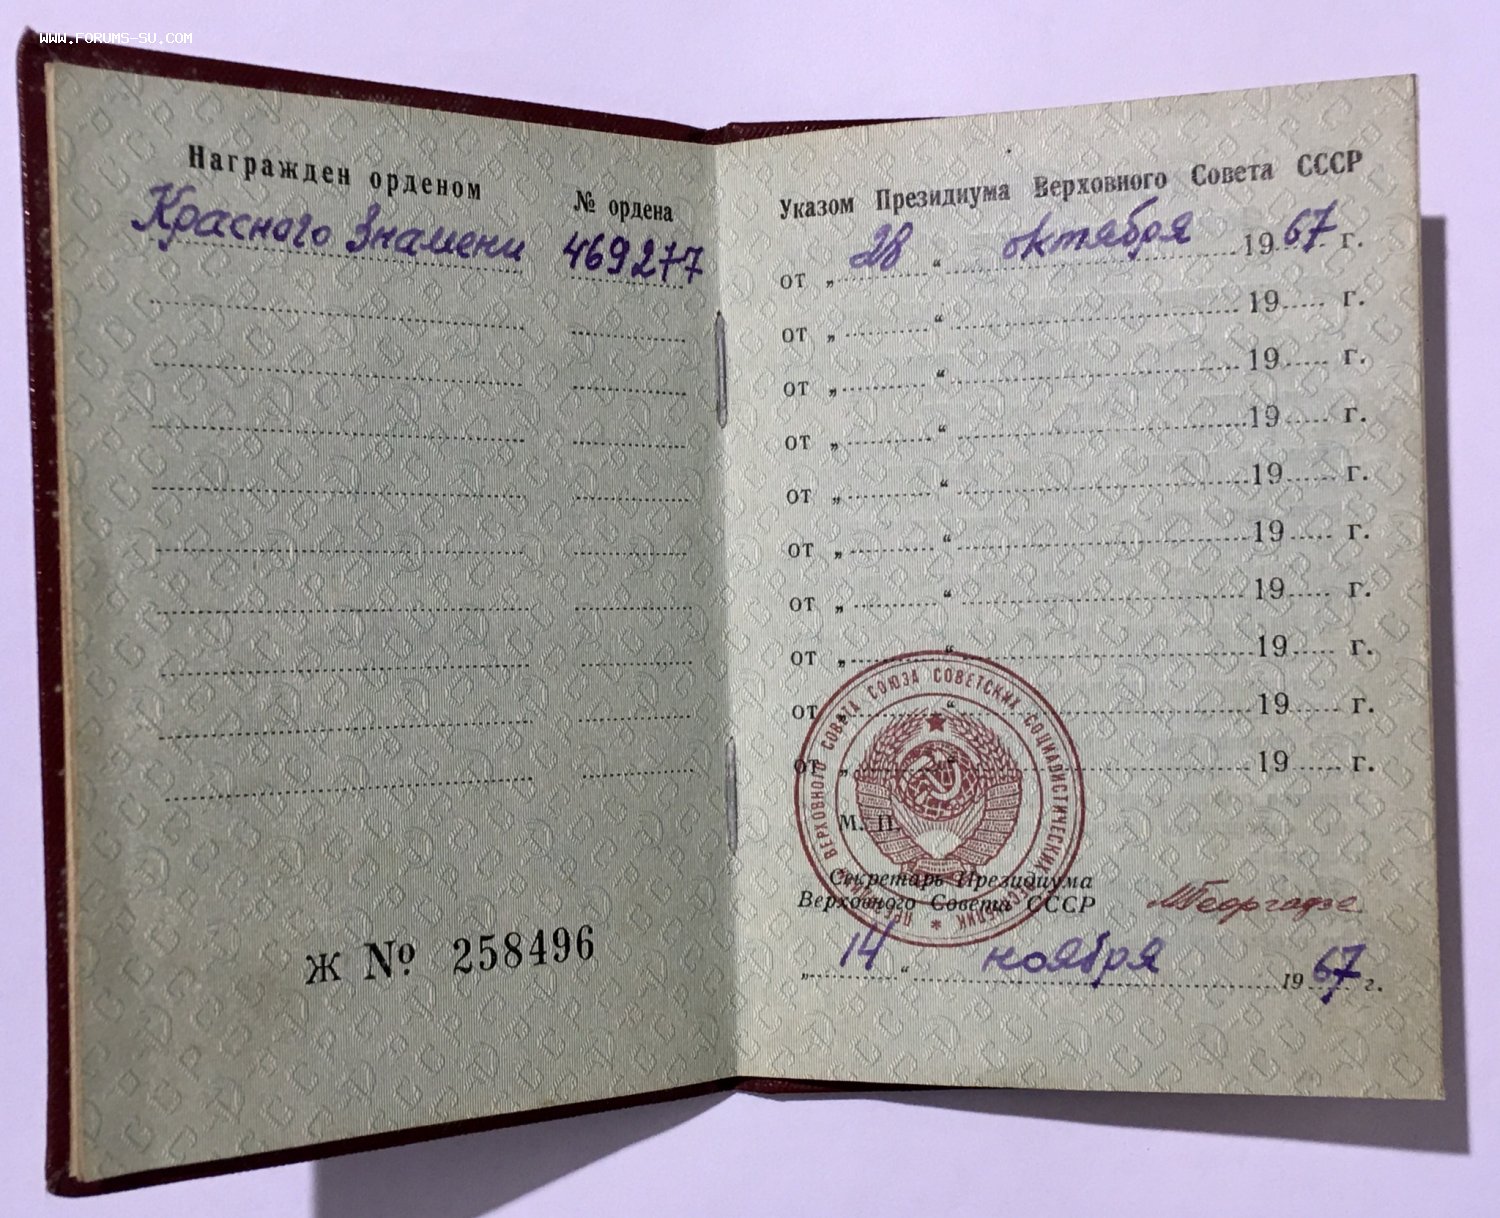 WWW.FORUMS-SU.COM
Награжден орденом
№ ордена
Красного Знамени 469277
Ж № 258496
Указом Президиума Верховного Совета СССР
от „ 28 “ октября 1967 г.
от „ “ 19 г.
от „ “ 19 г.
от „ “ 19 г.
от „ “ 19 г.
от „ “ 19 г.
от „ “ 19 г.
от „ “ 19 г.
от „ “ 19 г.
от „ “ 19 г.
М. П.
ПРЕЗИДИУМ ВЕРХОВНОГО СОВЕТА СОЮЗА СОВЕТСКИХ СОЦИАЛИСТИЧЕСКИХ РЕСПУБЛИК
Секретарь Президиума
Верховного Совета СССР МГеоргадзе
„ 14 “ ноября 1967 г.